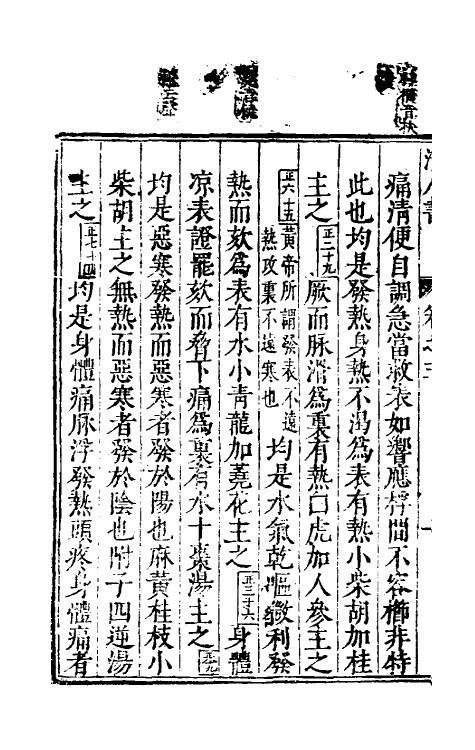 活人書 卷之三
痛清便自調急當救表如響應桴間不容櫛非特
此也均是發熱身熱不渴為表有熱小柴胡加桂
主之正二十九厥而脉滑為裏有熱白虎加人參主之
正六十五黃帝所謂發表不遠熱攻裏不遠寒也均是水氣乾嘔欬利發
熱而欬為表有水小青龍加蕘花主之正三十六身體
凉表證罷欬而脅下痛為裏有水十棗湯主之
均是惡寒發熱而惡寒者發於陽也麻黃桂枝小
柴胡主之無熱而惡寒者發於陰也附子四逆湯
主之正七十四均是身體痛脉浮發熱頭疼身體痛者